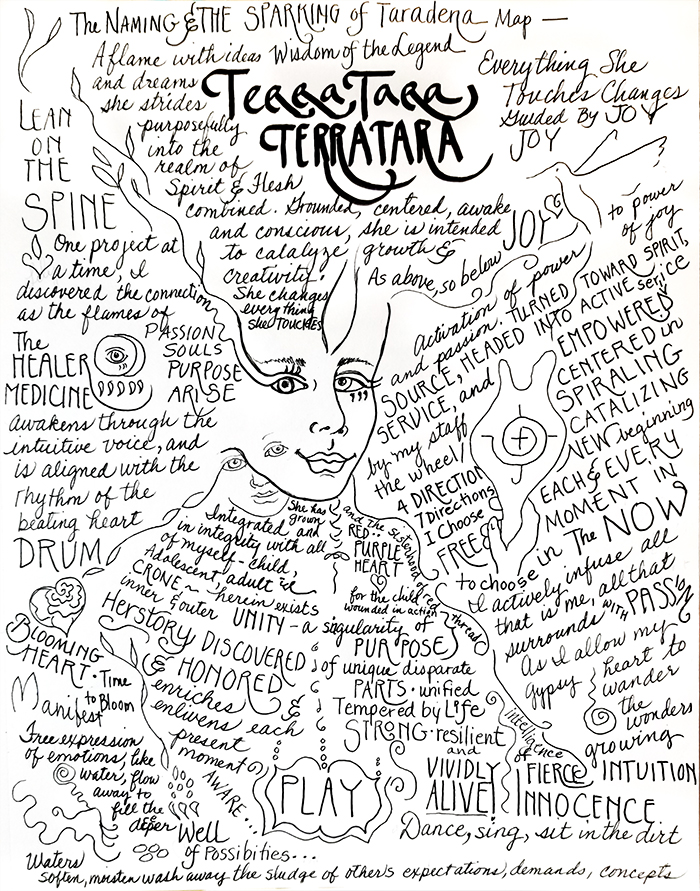 The NAMING & THE SPARKING of Taradena Map —
Aflame with ideas Wisdom of the Legend
and dreams
she strides
purposefully
into the
realm of
Spirit & Flesh
combined. Grounded, centered, awake
and conscious, she is intended
to catalyze growth &
creativity.
She changes
everything
she TOUCHES
TerraTara
TERRATARA
Everything She
Touches Changes
Guided By JOY
JOY
JOY
As above, so below
to power
of joy
LEAN
ON
THE
SPINE
One project at
a time, I
discovered the connection
as the flames of
PASSION
SOULS
PURPOSE
ARISE
The
HEALER
MEDICINE
awakens through the
intuitive voice, and
is aligned with the
rhythm of the
beating heart
DRUM
Activation of power
and passion. TURNED TOWARD SPIRIT,
SOURCE, HEADED INTO ACTIVE service
SERVICE, and
by my staff
the wheel/
4 DIRECTION
7 Directions
I Choose
FREE
EMPOWERED
CENTERED in
SPIRALING
CATALIZING
NEW beginning
EACH & EVERY
MOMENT IN
The NOW
to choose in
I actively infuse all
that is me, all that
surrounds WITH PASSION
As I allow my
gypsy heart to
wander
the wonders
growing
INTUITION
She has
grown
Integrated, and
in integrity with all
of myself - child,
Adolescent, adult &
CRONE ~ herein exists
inner & outer UNITY - a singularity of
PURPOSE
and the sisterhood of red threads
RED..
PURPLE
HEART
for the child
wounded in action
Herstory DISCOVERED
& HONORED
enriches &
enlivens each
present
moment
AWARE...
of unique disparate
PARTS · unified
Tempered by Life
STRONG · resilient
and
VIVIDLY
ALIVE!
of
FIERCE
INNOCENCE.
BLOOMING
HEART · Time
to Bloom
Manifest
Free expression
of emotions, like
water, flow
away to
fill the
deeper Well
of Possibities...
PLAY
Dance, sing, sit in the dirt
Waters
soften, moisten wash away the sludge of other's expectations, demands, concepts